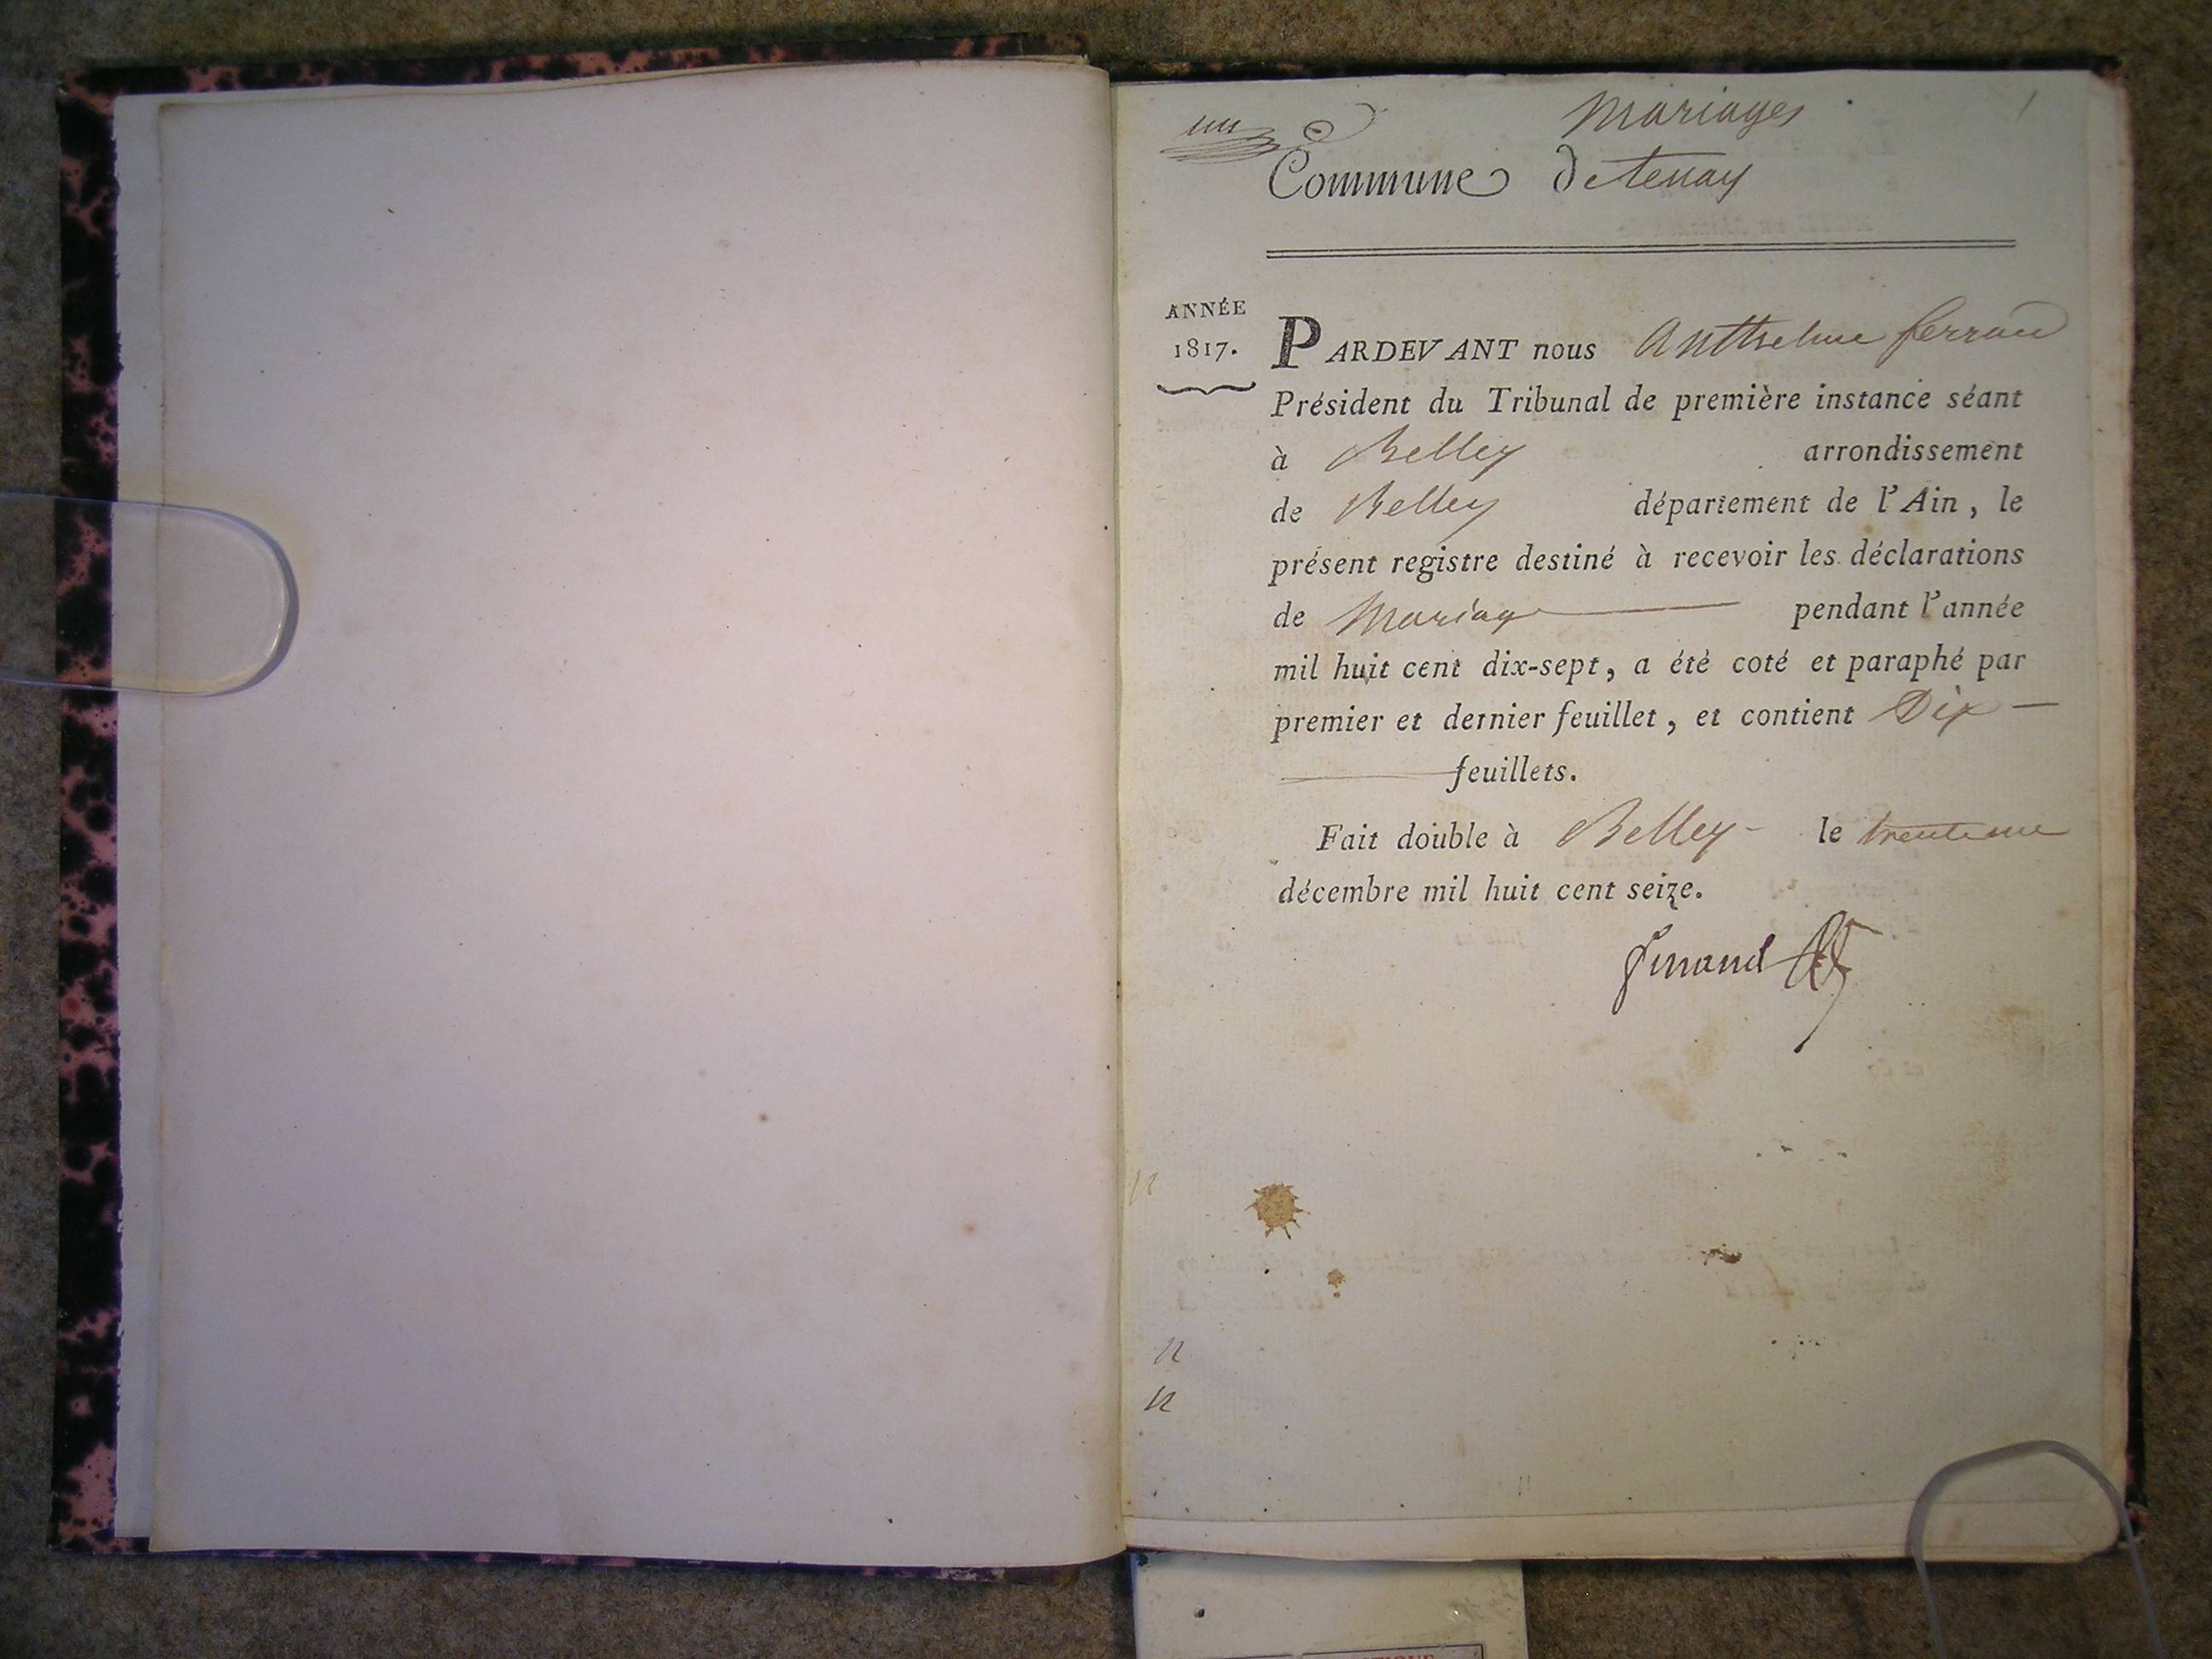 Mariages
un
Commune de tenay
ANNÉE
1817.
PARDEVANT nous Anthelme ferrand
Président du Tribunal de première instance séant
à Belley arrondissement
de Belley département de l'Ain, le
présent registre destiné à recevoir les déclarations
de Mariage pendant l'année
mil huit cent dix-sept, a été coté et paraphé par
premier et dernier feuillet, et contient Dix —
feuillets.
Fait double à Belley - le trente une
décembre mil huit cent seize.
ferrand